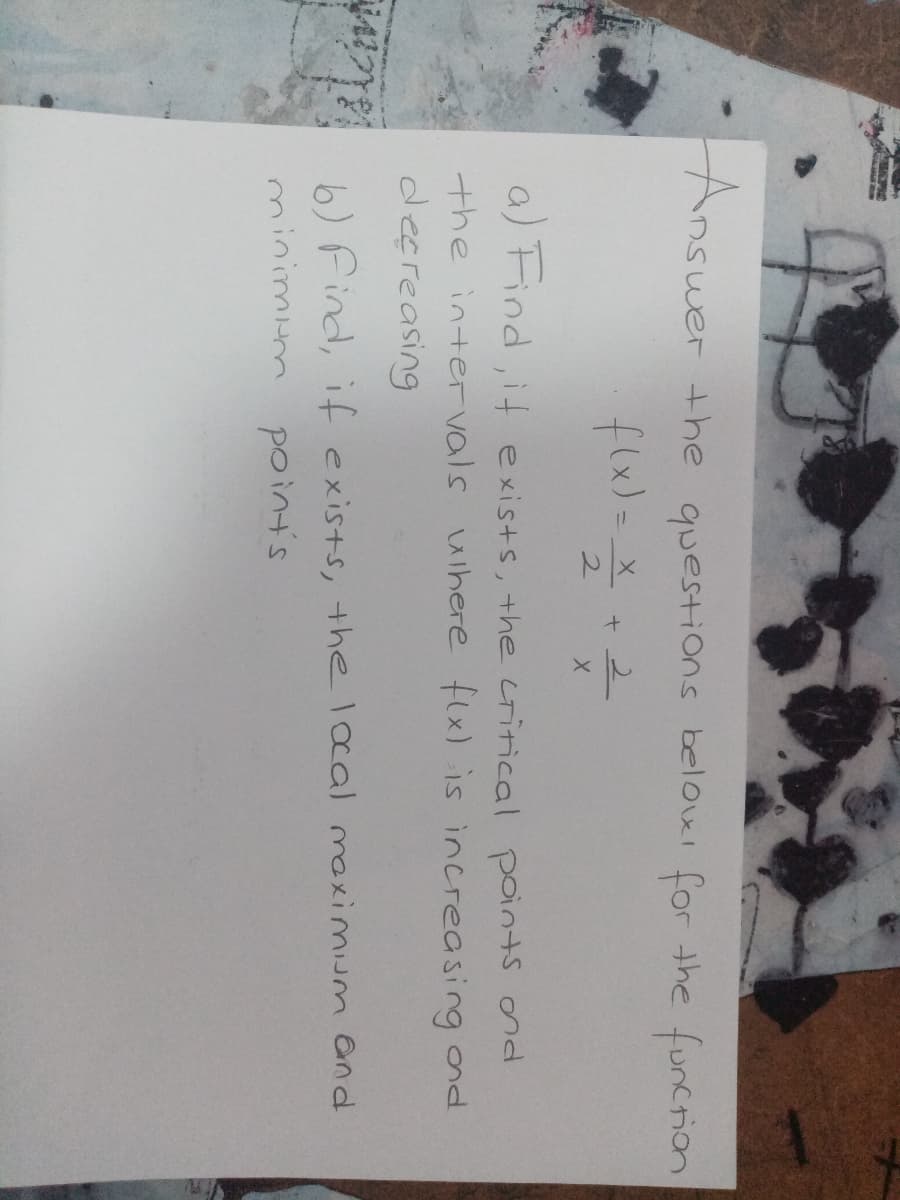 Answer the questions below for the function
f(x) = x/2 + 2/x
a) Find, if exists, the critical points and
the intervals where f(x) is increasing and
decreasing
b) find, if exists, the local maximum and
minimum points